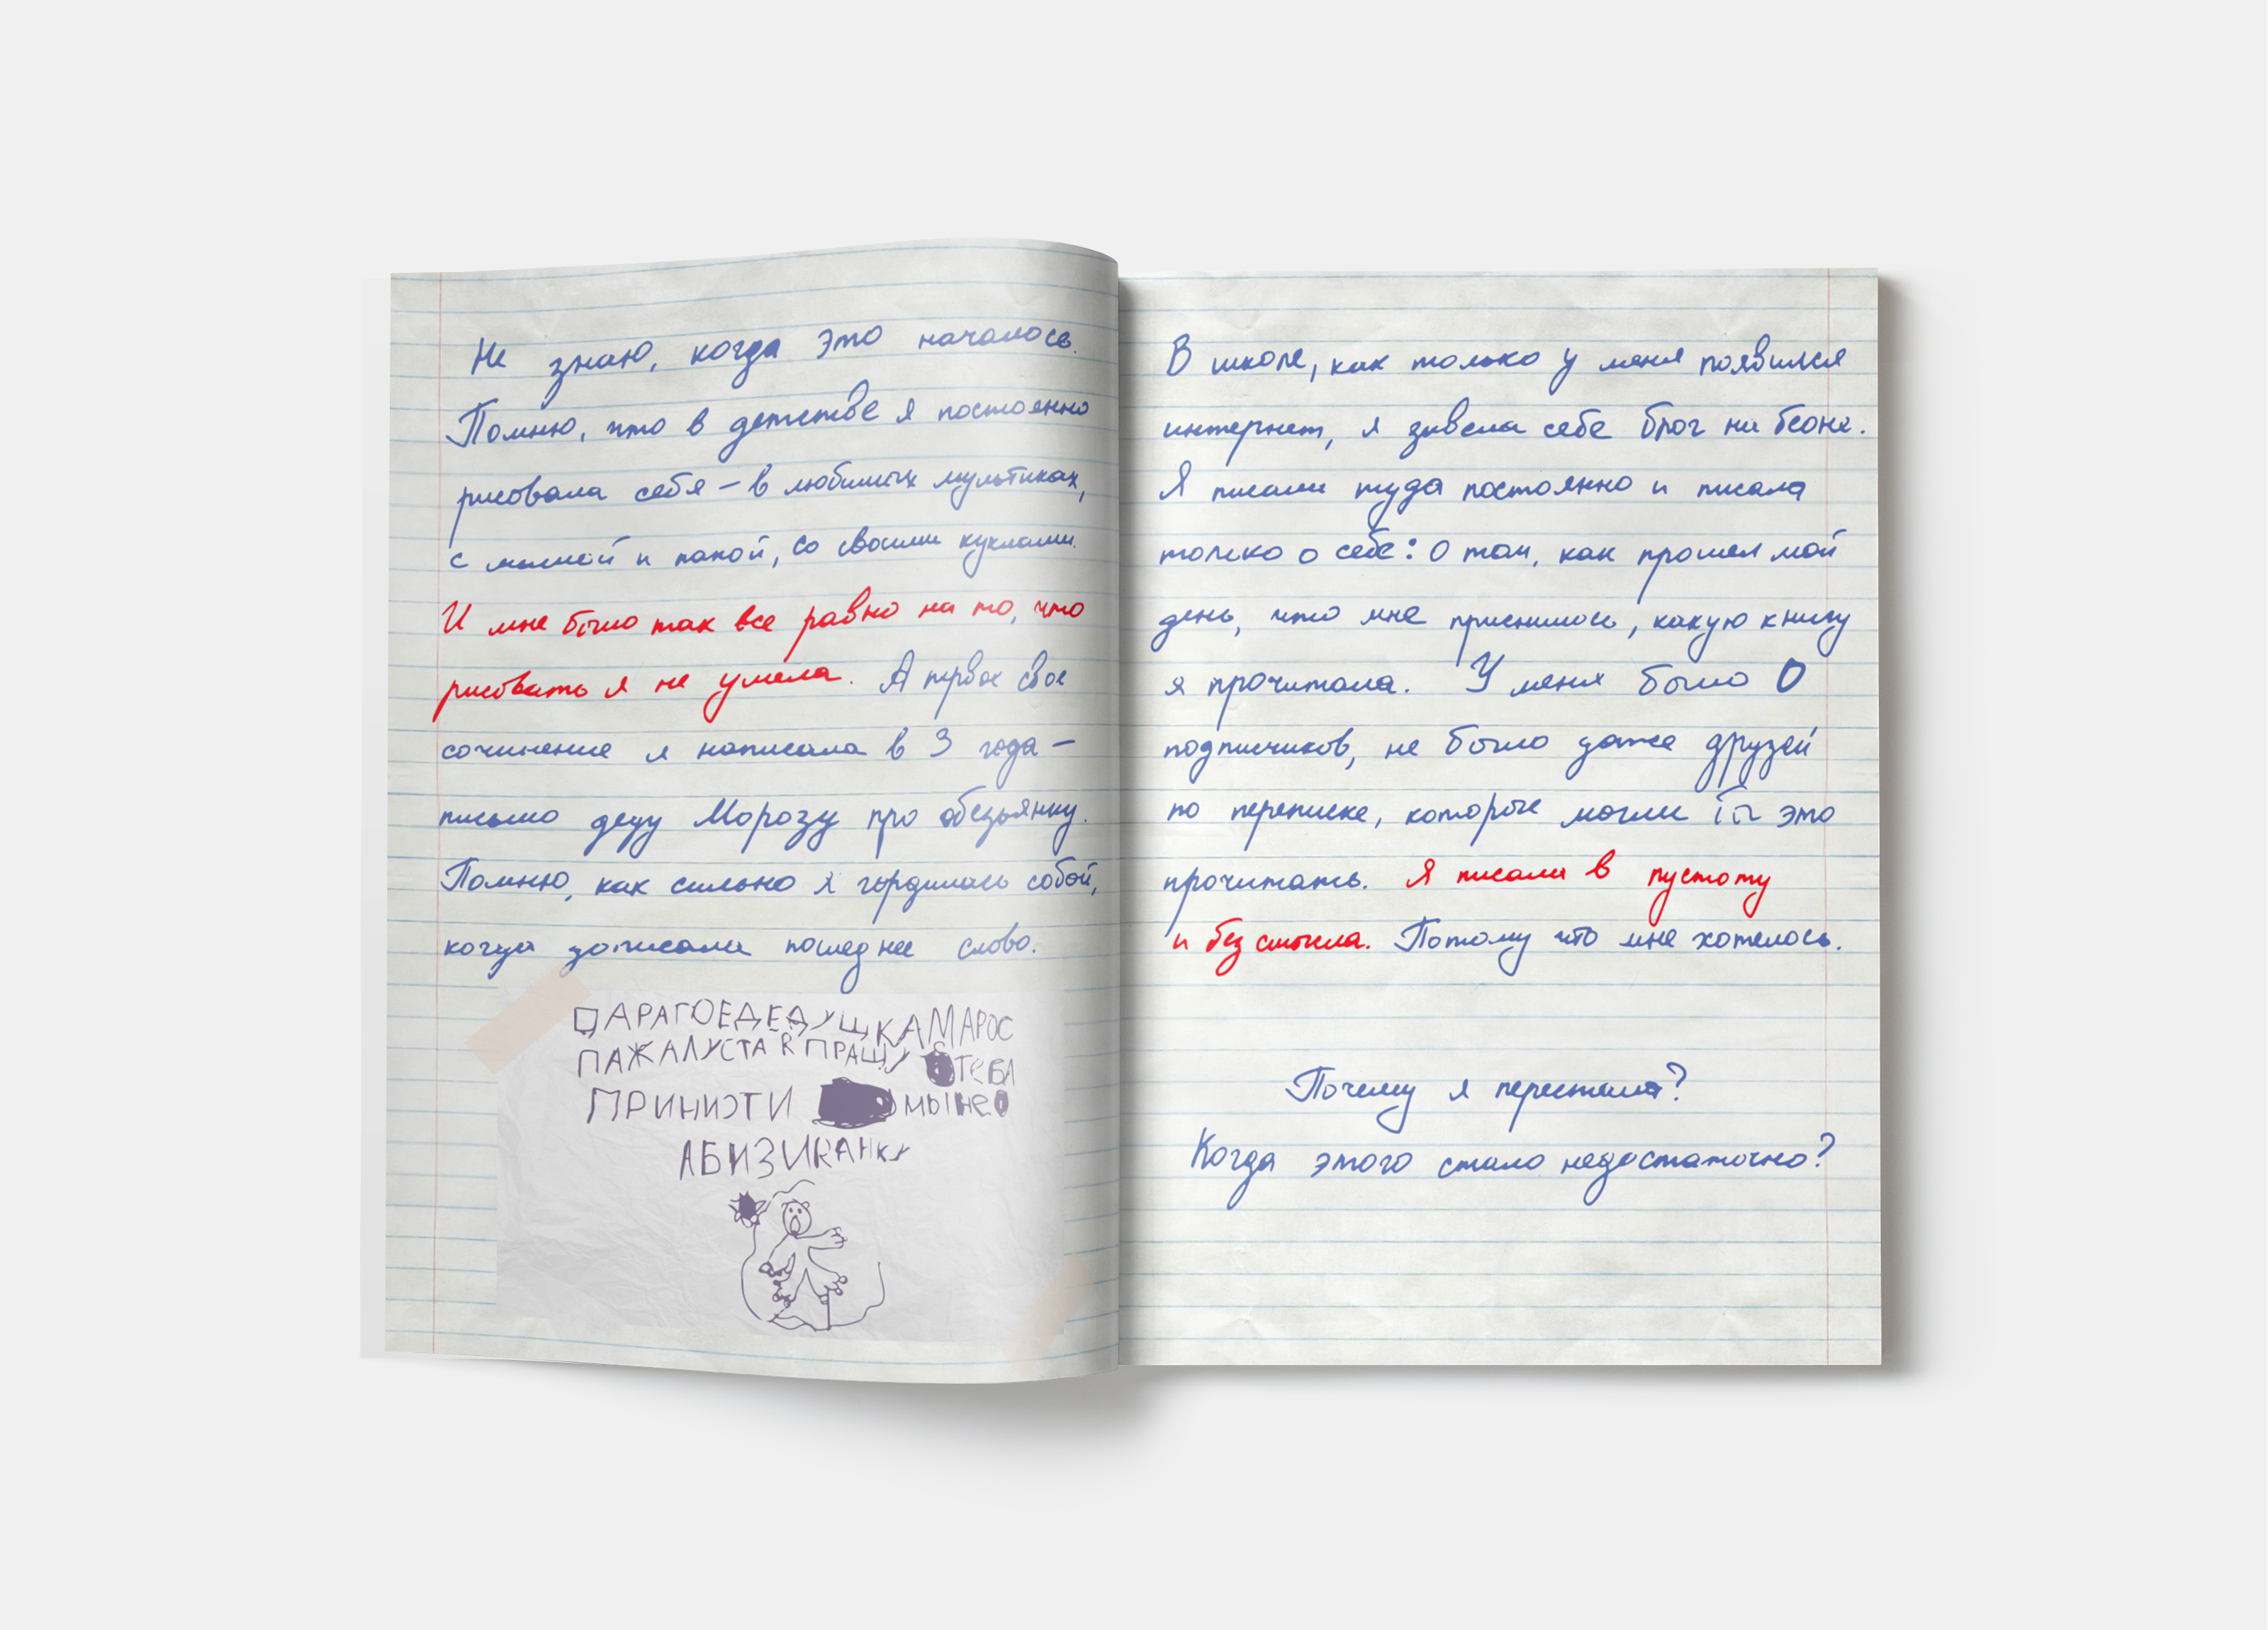 Не знаю, когда это началось.
Помню, что в детстве я постоянно
рисовала себя – в любимых мультиках,
с мамой и папой, со своими куклами.
И мне было так все равно на то, что
рисовать я не умела. А первое свое
сочинение я написала в 3 года –
письмо деду Морозу про обезьянку.
Помню, как сильно я гордилась собой,
когда дописала последнее слово.
ДАРАГОЕДЕДУШКАМАРОС
ПАЖАЛУСТА Я ПРАШУ ТЕБЯ
ПРИНИСТИ МЫНЕ
АБИЗИЯНКУ
В школе, как только у меня появился
интернет, я завела себе блог на беоне.
Я писала туда постоянно и писала
только о себе: о том, как прошел мой
день, что мне приснилось, какую книгу
я прочитала. У меня было 0
подписчиков, не было даже друзей
по переписке, которые могли бы это
прочитать. Я писала в пустоту
и без смысла. Потому что мне хотелось.
Почему я перестала?
Когда этого стало недостаточно?